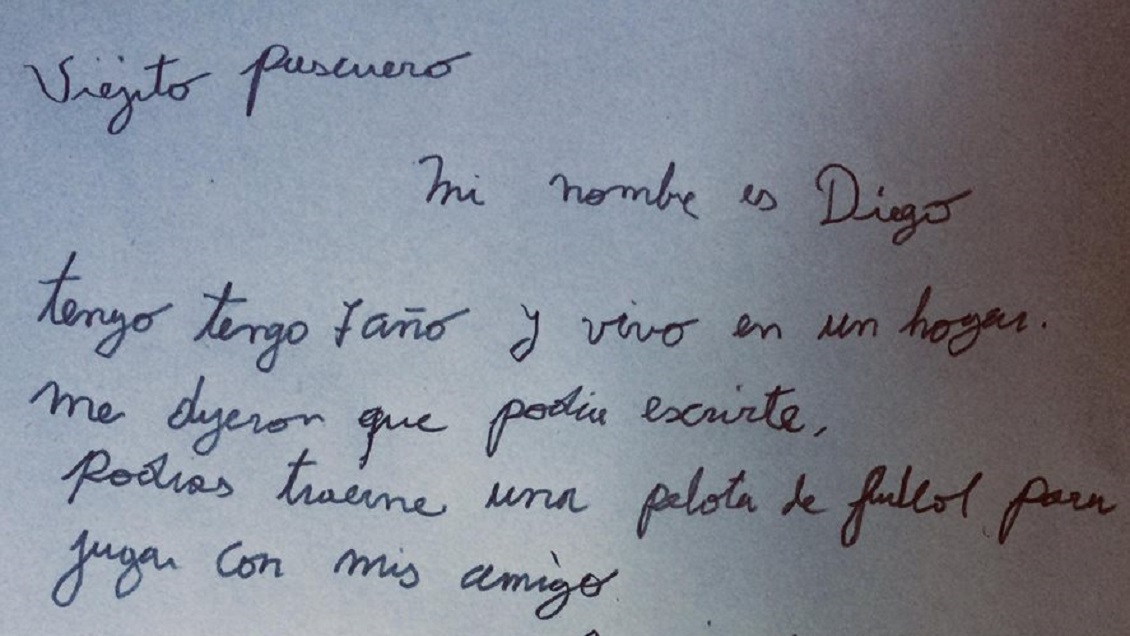 Viejito pascuero
Mi nombre es Diego
tengo tengo 7 año y vivo en un hogar.
me dijeron que podia escrirte,
podras traerme una pelota de futbol para
jugar con mis amigo